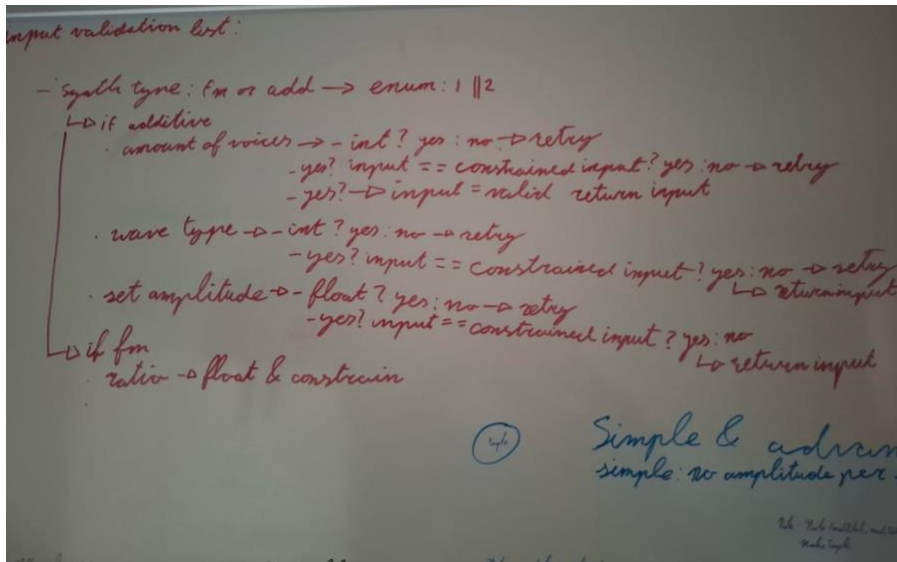 input validation list:
- synth type: fm or add → enum: 1 || 2
↳ if additive
· amount of voices → - int? yes: no → retry
- yes? input == constrained input? yes: no → retry
- yes? → input = valid return input
· wave type → - int? yes: no → retry
- yes? input == constrained input? yes: no → retry
↳ return input
· set amplitude → - float? yes: no → retry
- yes? input == constrained input? yes: no
↳ return input
↳ if fm
· ratio → float & constrain
·
Simple &
simple: no amplitude per